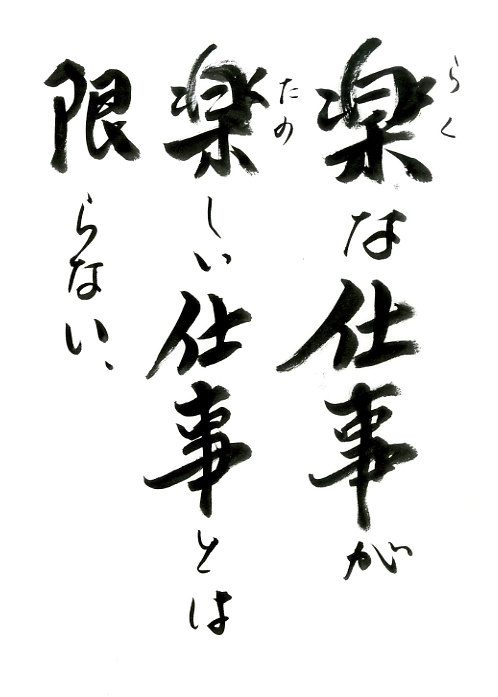 らく
楽な仕事が
たの
楽しい仕事とは
限らない、